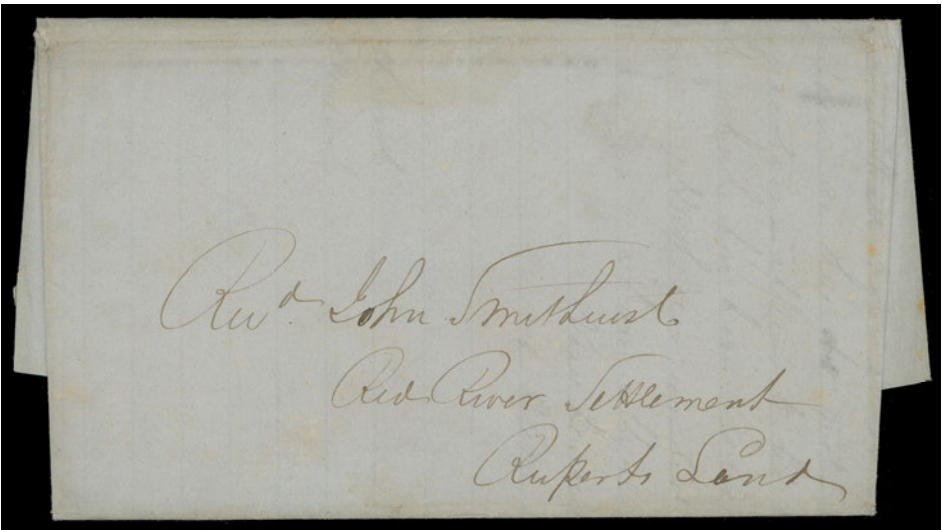 Revd. John Smithurst
Red River Settlement
Ruperts Land